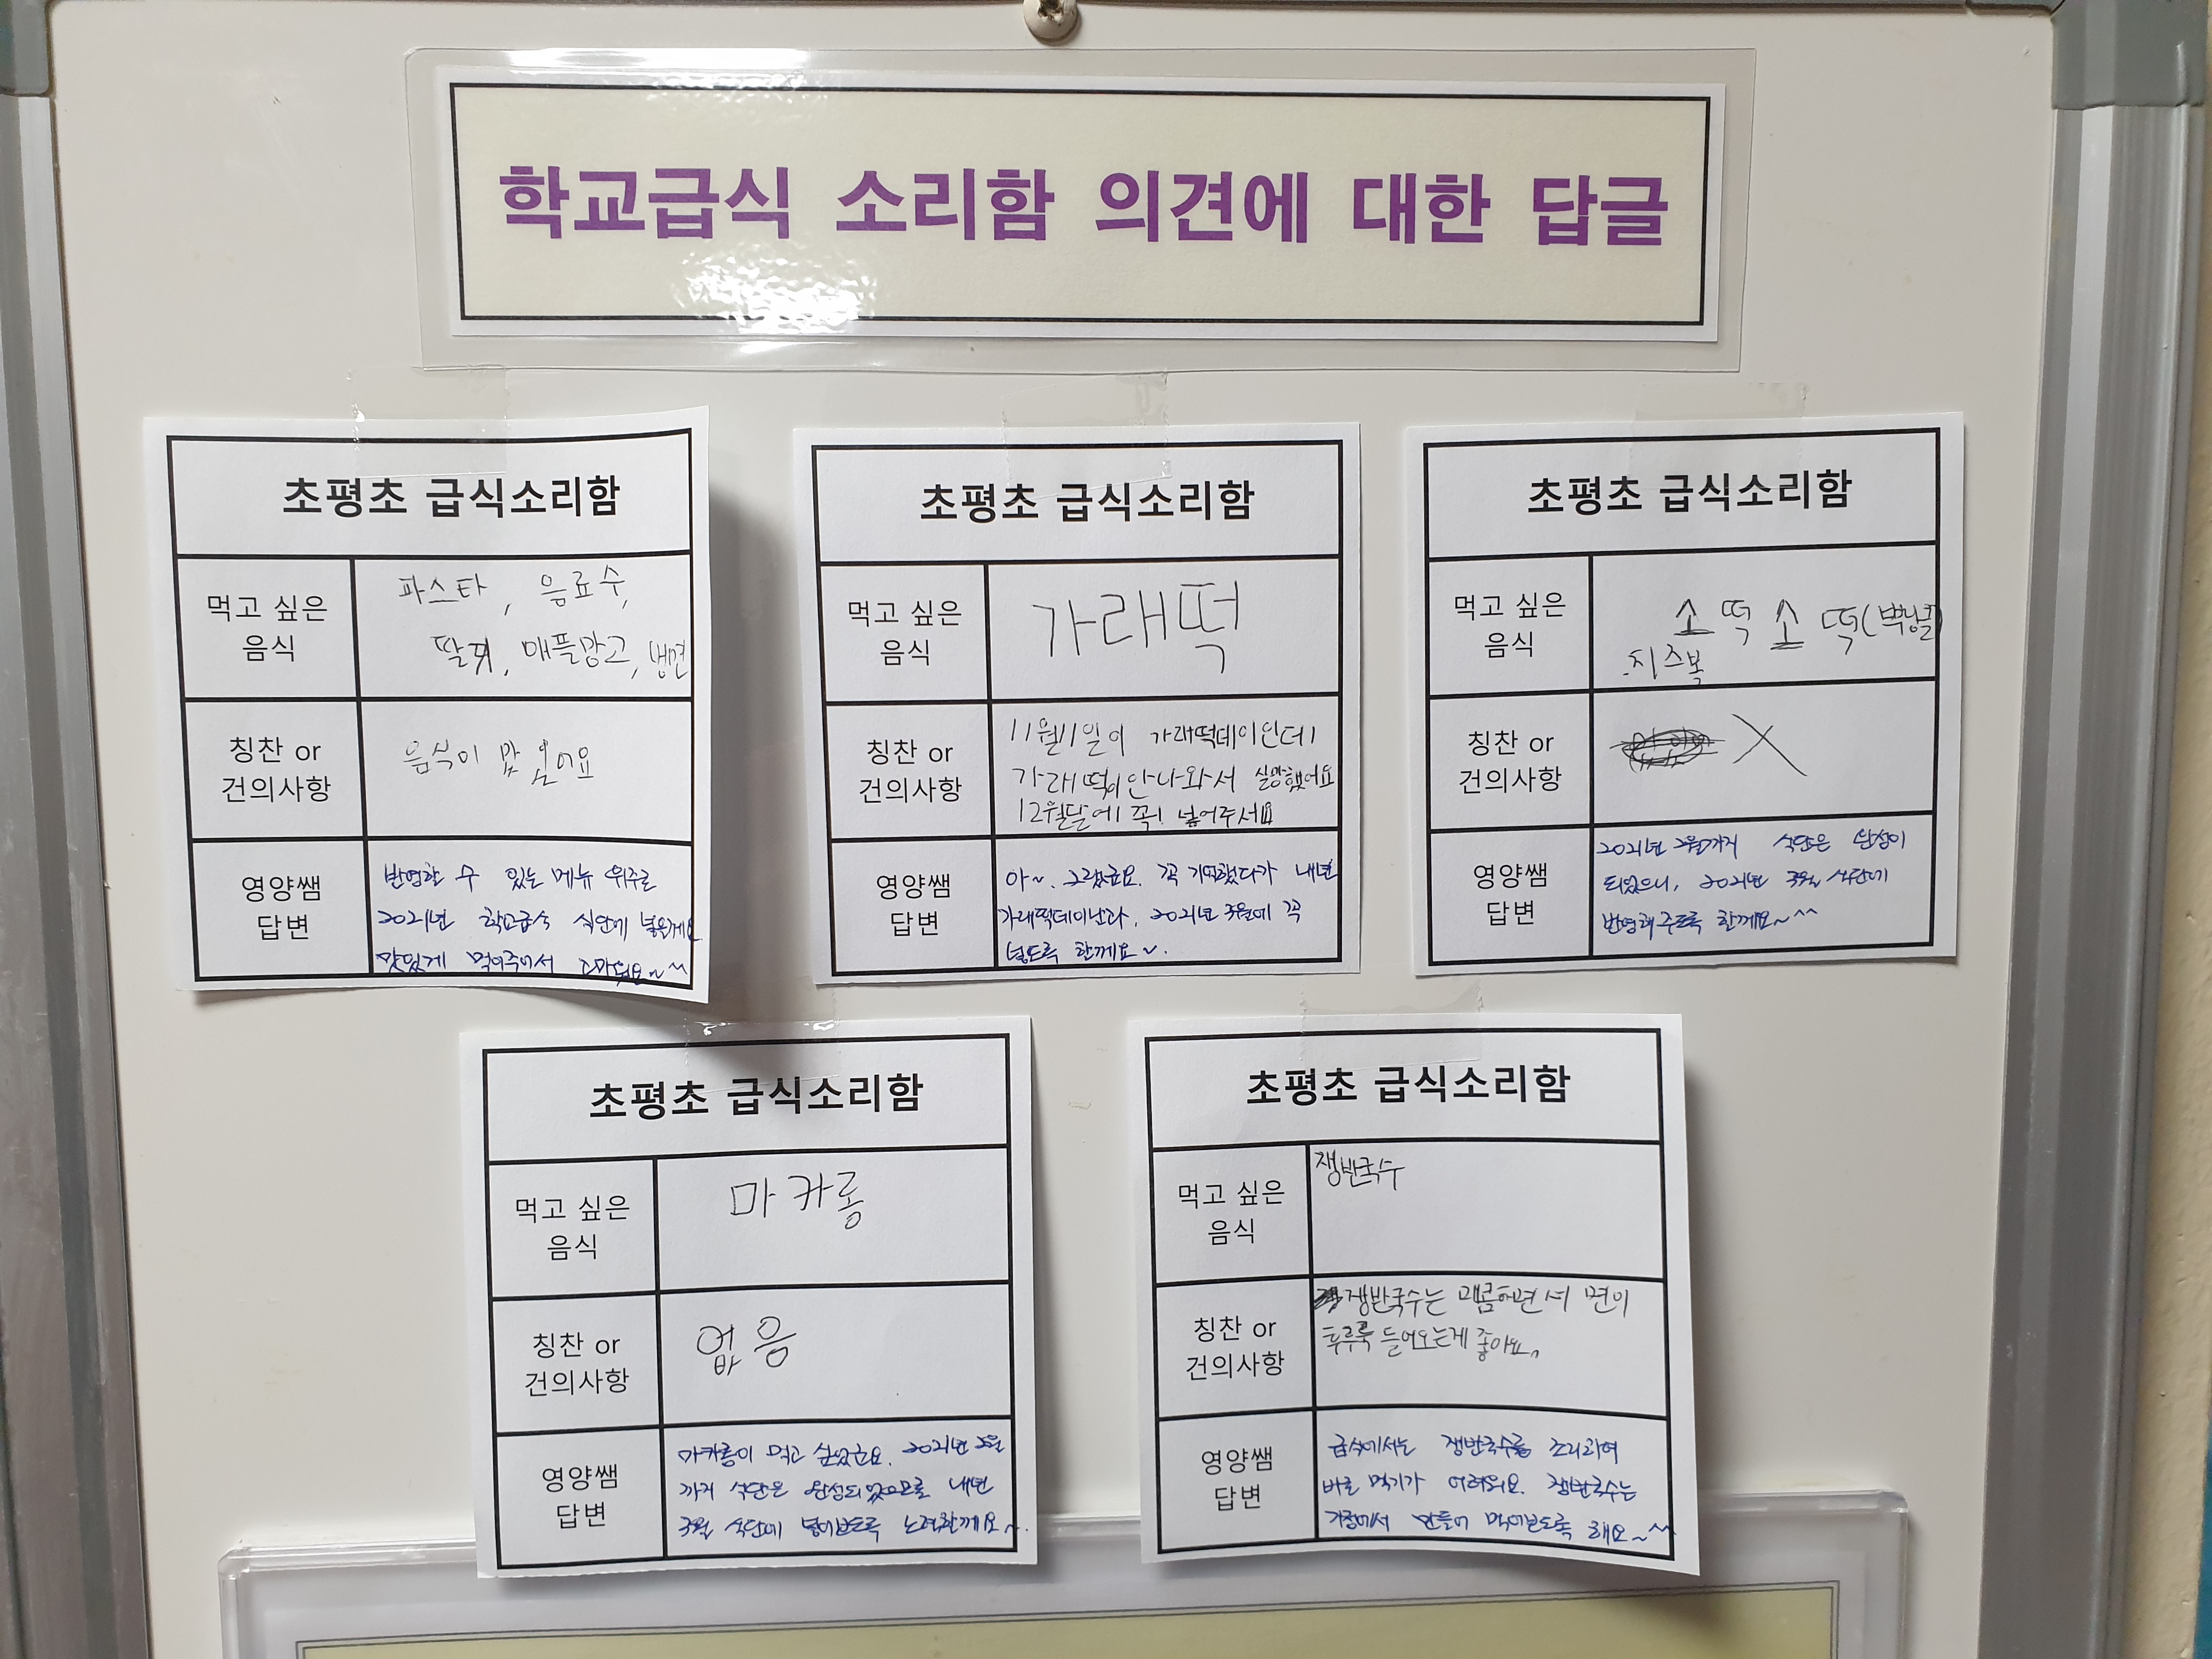 학교급식 소리함 의견에 대한 답글
초평초 급식소리함
먹고 싶은
음식
파스타, 음료수,
딸기, 애플망고, 냉면
칭찬 or
건의사항
음식이 맜있어요
영양쌤
답변
반영할 수 있는 메뉴 위주로
2021년 학교급식 식단에 넣을게요
맛있게 먹어주어서 고마워요~^^
초평초 급식소리함
먹고 싶은
음식
가래떡
칭찬 or
건의사항
11월11일이 가래떡데이인데
가래떡이안나와서 실망했어요
12월달에 꼭! 넣어주세요
영양쌤
답변
아~. 그랬군요. 꼭 기억했다가 내년
가래떡데이날과, 2021년 3월에 꼭
넣도록 할께요~.
초평초 급식소리함
먹고 싶은
음식
소떡소떡
치즈볼
칭찬 or
건의사항
X
영양쌤
답변
2021년 2월까지 식단은 완성이
되었으니, 2021년 3월 식단에
반영해주도록 할께요~^^
초평초 급식소리함
먹고 싶은
음식
마카롱
칭찬 or
건의사항
없음
영양쌤
답변
마카롱이 먹고 싶었군요. 2021년 2월
까지 식단은 완성되었으므로 내년
3월 식단에 넣어보도록 노력할께요~.
초평초 급식소리함
먹고 싶은
음식
쟁반국수
칭찬 or
건의사항
쟁반국수는 매콤하면서 면이
후루룩 들어오는게 좋아요.
영양쌤
답변
급식에서는 쟁반국수를 조리하여
바로 먹기가 어려워요. 쟁반국수는
가정에서 만들어 먹어보도록 해요~^^